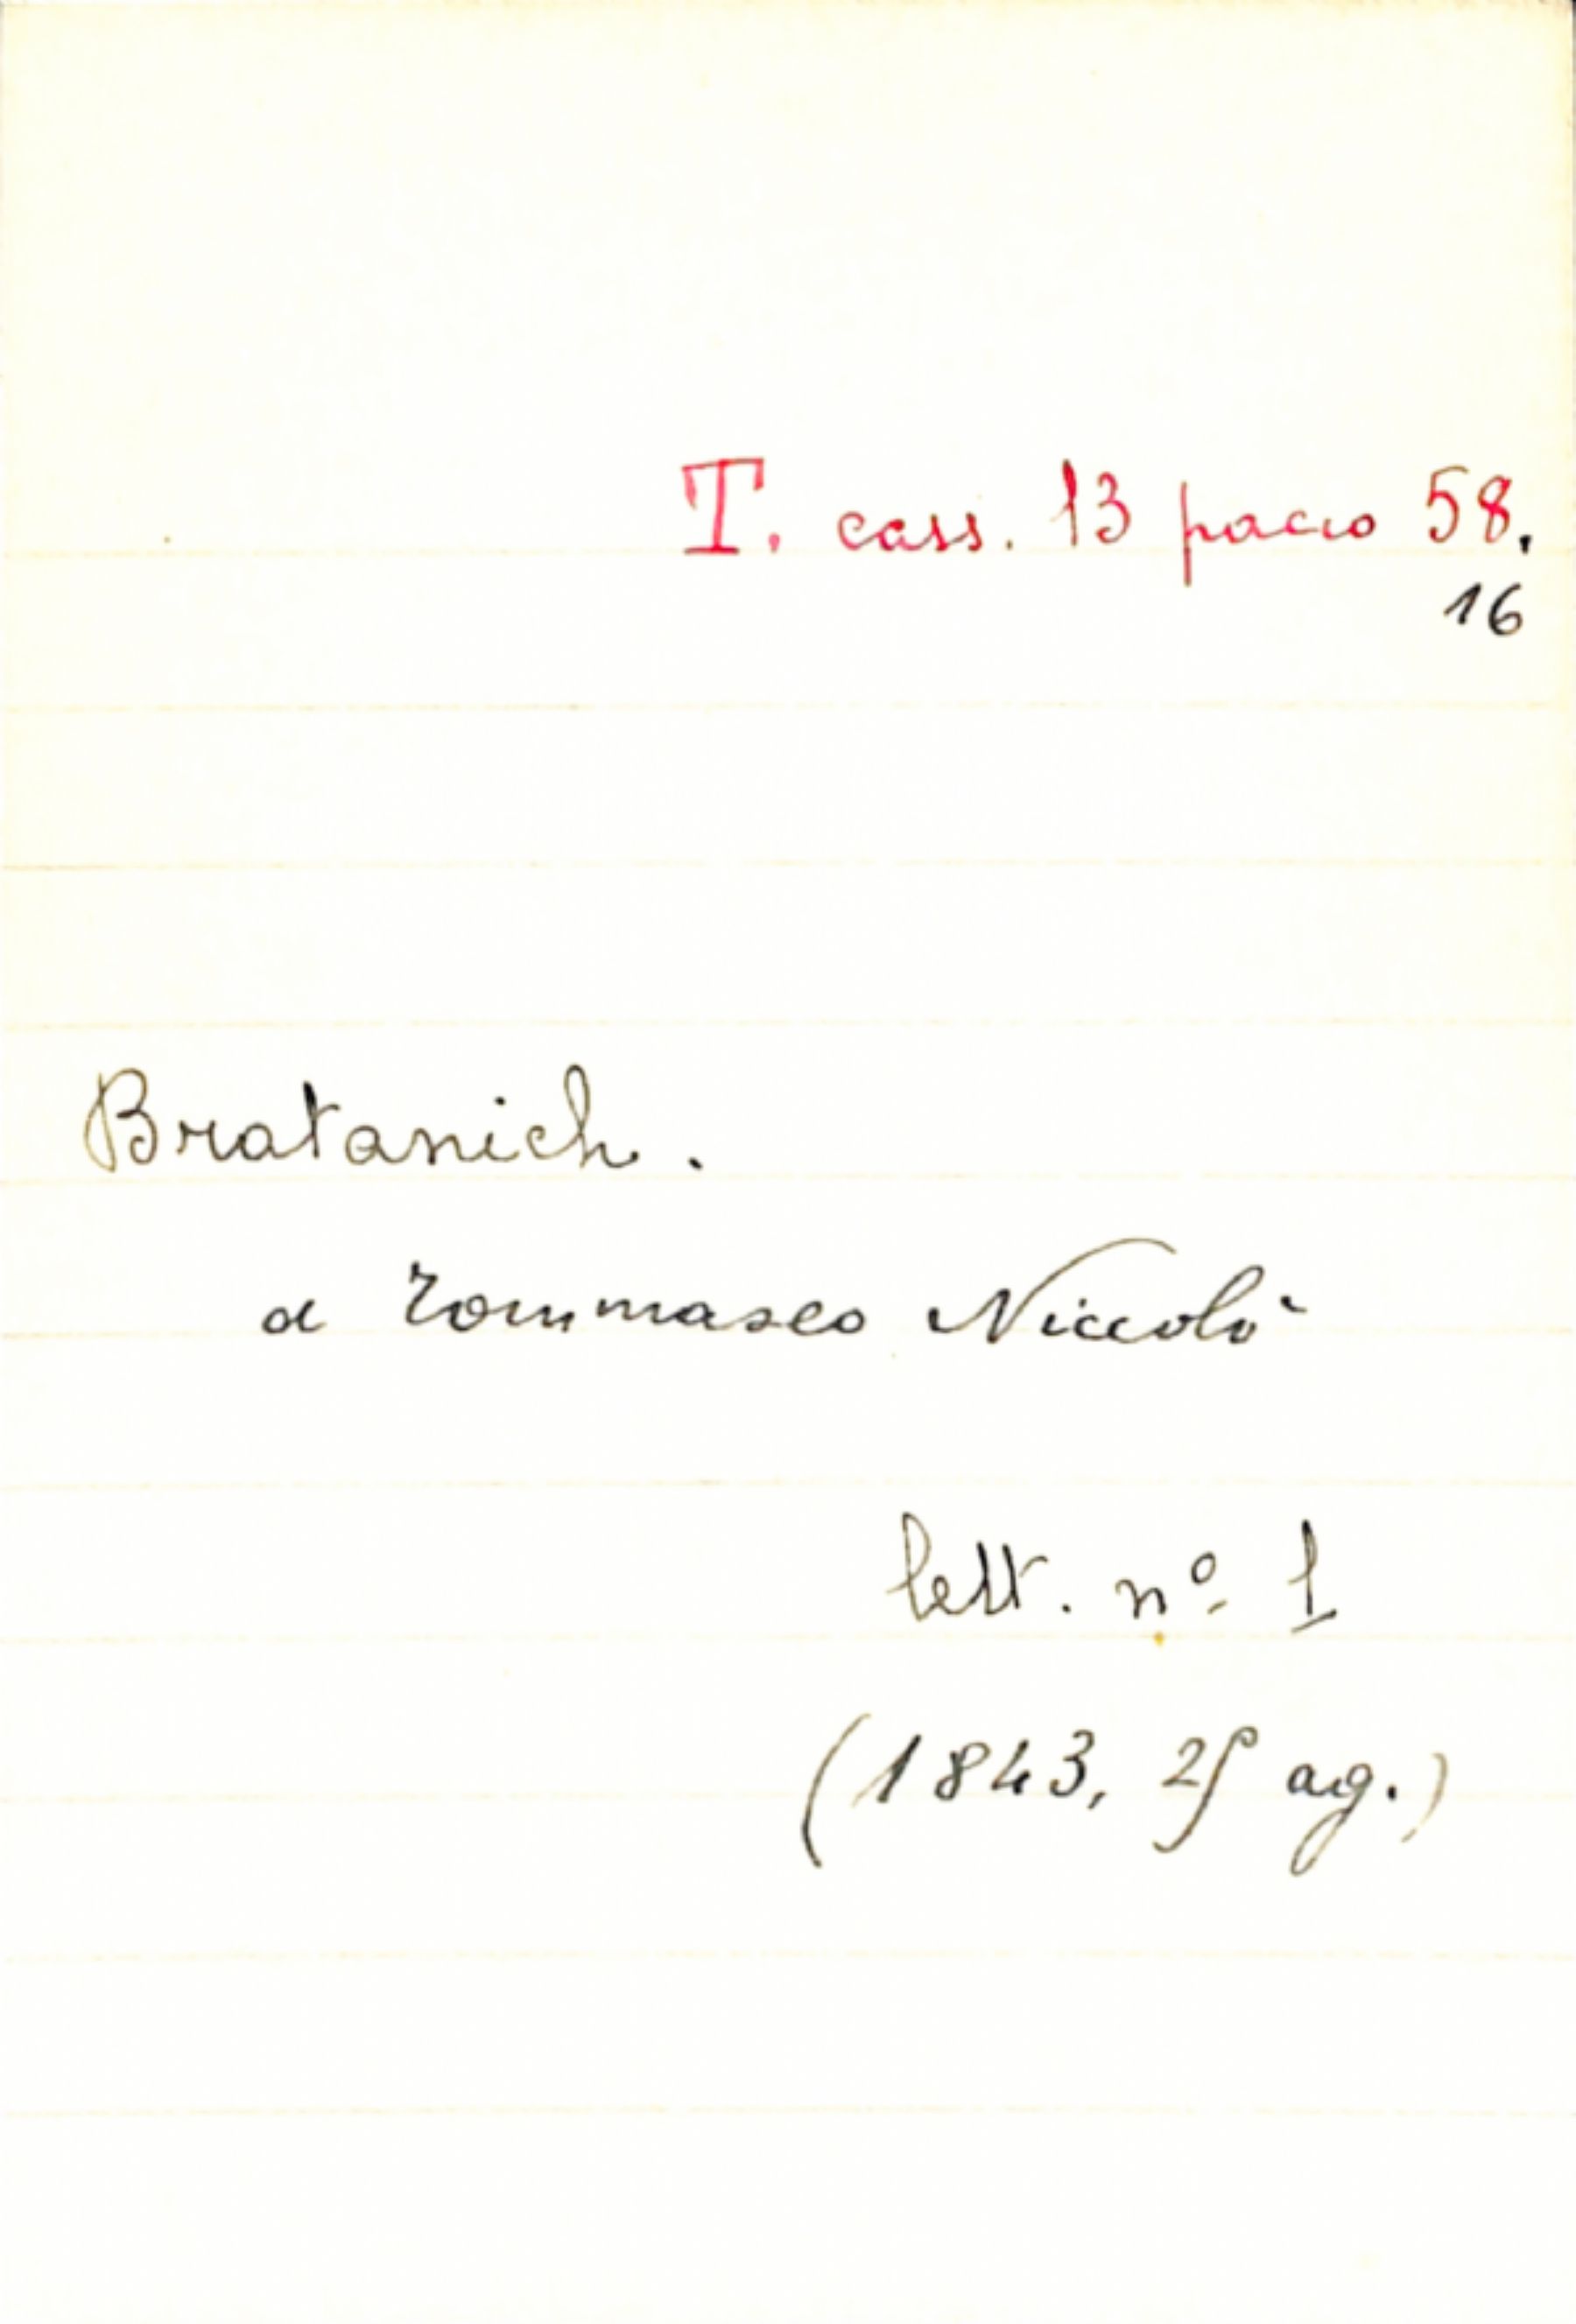 T. cass. 13 pacco 58.
16
Bratanich.
a Tommaseo Niccolò
lett. nº 1
(1843, ag.)